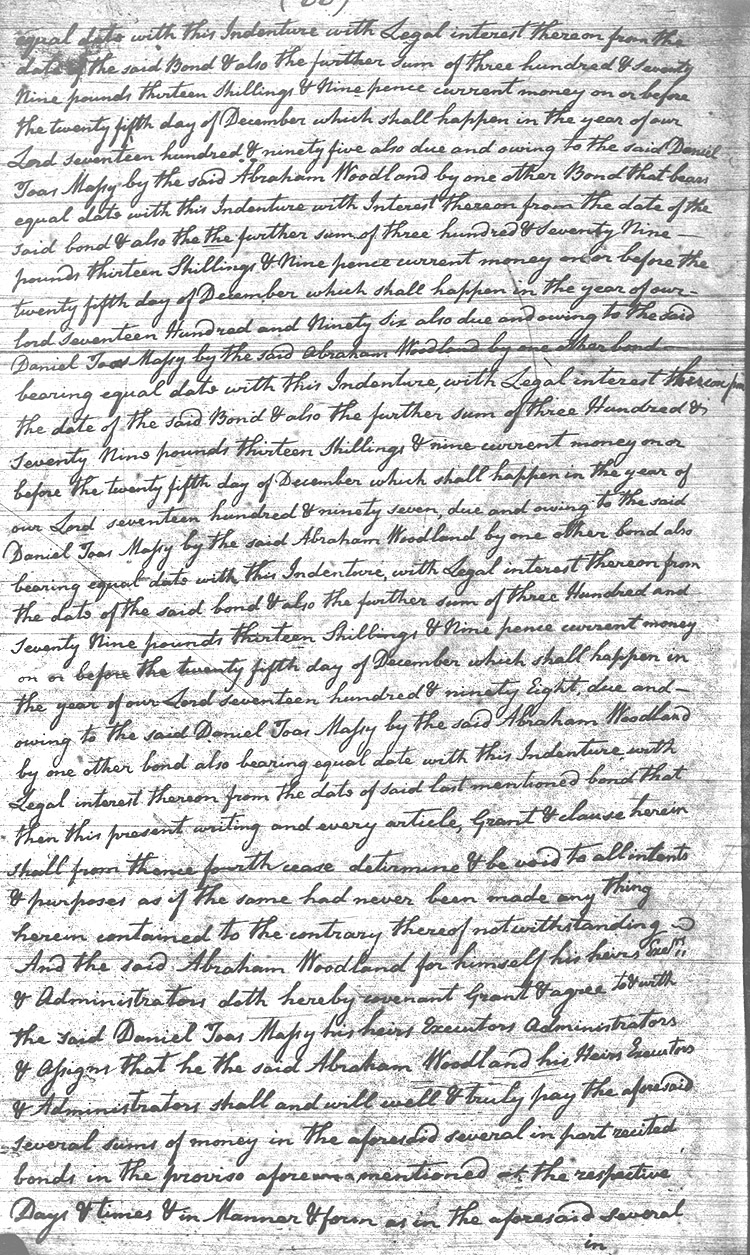 equal date with this Indenture with Legal interest thereon from the
date of the said Bond & also the further sum of three hundred & Seventy
Nine pounds thirteen Shillings & Nine pence current money on or before
the twenty fifth day of December which shall happen in the year of our
Lord seventeen hundred & ninety five also due and owing to the said Daniel
Toas Massy by the said Abraham Woodland by one other Bond that bears
equal date with this Indenture with Interest thereon from the date of the
said bond & also the the further sum of three hundred & Seventy Nine —
pounds thirteen Shillings & Nine pence current money on or before the
twenty fifth day of December which shall happen in the year of our –
lord seventeen Hundred and Ninety Six also due and owing to the said
Daniel Toas Massy by the said Abraham Woodland by one other bond –
bearing equal date with this Indenture, with Legal interest thereon from
the date of the said Bond & also the further sum of three Hundred &
Seventy Nine pounds thirteen Shillings & nine current money on or
before the twenty fifth day of December which shall happen in the year of
our Lord seventeen hundred & ninety seven, due and owing to the said
Daniel Toas Massy by the said Abraham Woodland by one other bond also
bearing equal date with this Indenture, with Legal interest thereon from
the date of the said bond & also the further sum of three Hundred and
Seventy Nine pounds thirteen Shillings & Nine pence current money
on or before the twenty fifth day of December which shall happen in
the year of our Lord seventeen hundred & ninety Eight, due and –
owing to the said Daniel Toas Massy by the said Abraham Woodland
by one other bond also bearing equal date with this Indenture with
Legal interest thereon from the date of said last mentioned bond that
then this present writing and every article, Grant & clause herein
shall from thence fourth cease determine & be void to all intents
& purposes as if the same had never been made any thing
herein contained to the contrary thereof notwithstanding
And the said Abraham Woodland for himself his heirs Exers
& Administrators doth hereby covenant Grant & agree to & with
the said Daniel Toas Massy his heirs Executors Administrators
& Assigns that he the said Abraham Woodland his Heirs Executors
& Administrators shall and will well & truly pay the aforesaid
several sums of money in the aforesaid several in part recited
bonds in the proviso afore mentioned at the respective
Days & times & in Manner & form as in the aforesaid several
in